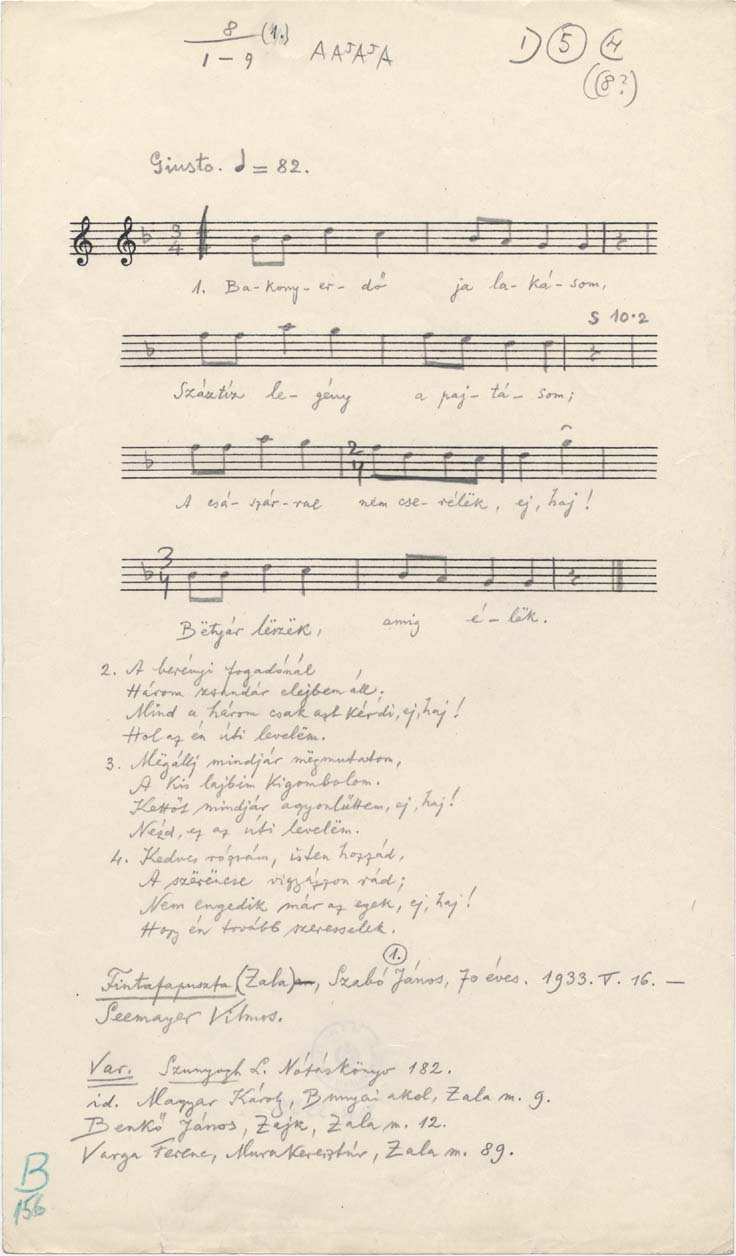 8 (1.)
1 – 9
A A⁵ A⁵ A
1) 5 4
(8?)
Giusto. ♩ = 82.
3
4
1. Ba-kony-er-dő ja la-ká-som,
S 10·2
Száztíz le-gény a paj-tá-som;
2
4
A csá-szár-ral nem cse-rélëk, ej, haj!
3
4
Bëtyár lëszëk, amig é-lëk.
2. A berényi fogadónál,
Három zsandár elejben áll.
Mind a három csak azt kérdi, ej, haj!
Hol az én úti levelëm.
3. Mëgállj mindjár mëgmutatom,
A kis lajbim kigombolom.
Kettőt mindjár agyonlűttem, ej, haj!
Nézd, ez az úti levelëm.
4. Kedves rózsám, isten hozzád,
A szërëncse vigyázzon rád;
Nem engedik már az egek, ej, haj!
Hogy én tovább szeresselek.
1.
Fintafapuszta (Zala), Szabó János, 70 éves. 1933. V. 16. –
Seemayer Vilmos.
Var. Szunyogh L. Nótáskönyv 182.
id. Magyar Károly, Bunyai akol, Zala m. 9.
Benkő János, Zajk, Zala m. 12.
Varga Ferenc, Murakeresztúr, Zala m. 89.
B
156